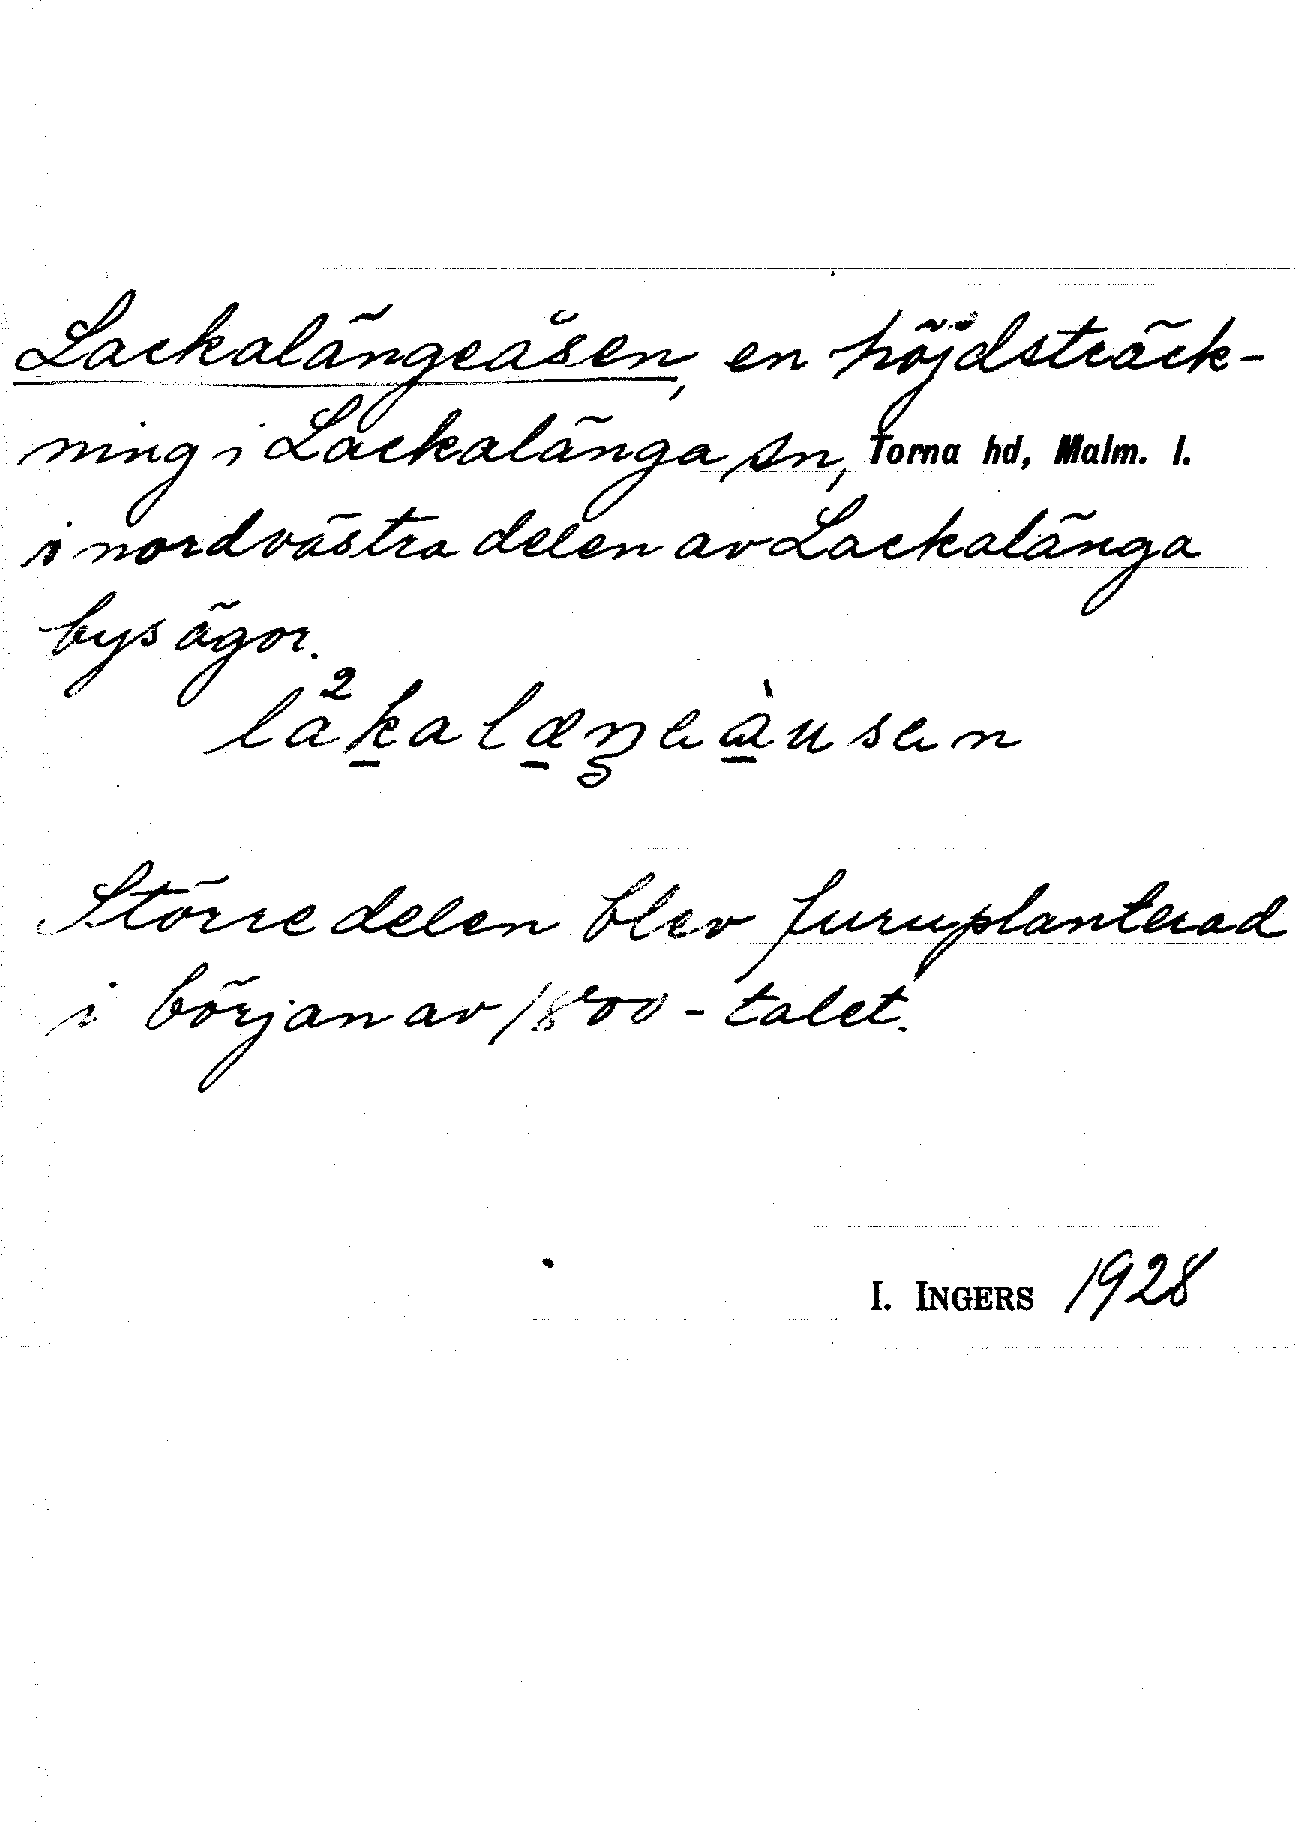 Lackalängeåsen, en höjdsträck-
ning i Lackalänga sn, Torna hd, Malm. l.
i nordvästra delen av Lackalänga
bys ägor.
Större delen blev furuplanterad
i början av 1800-talet.
I. INGERS 1928